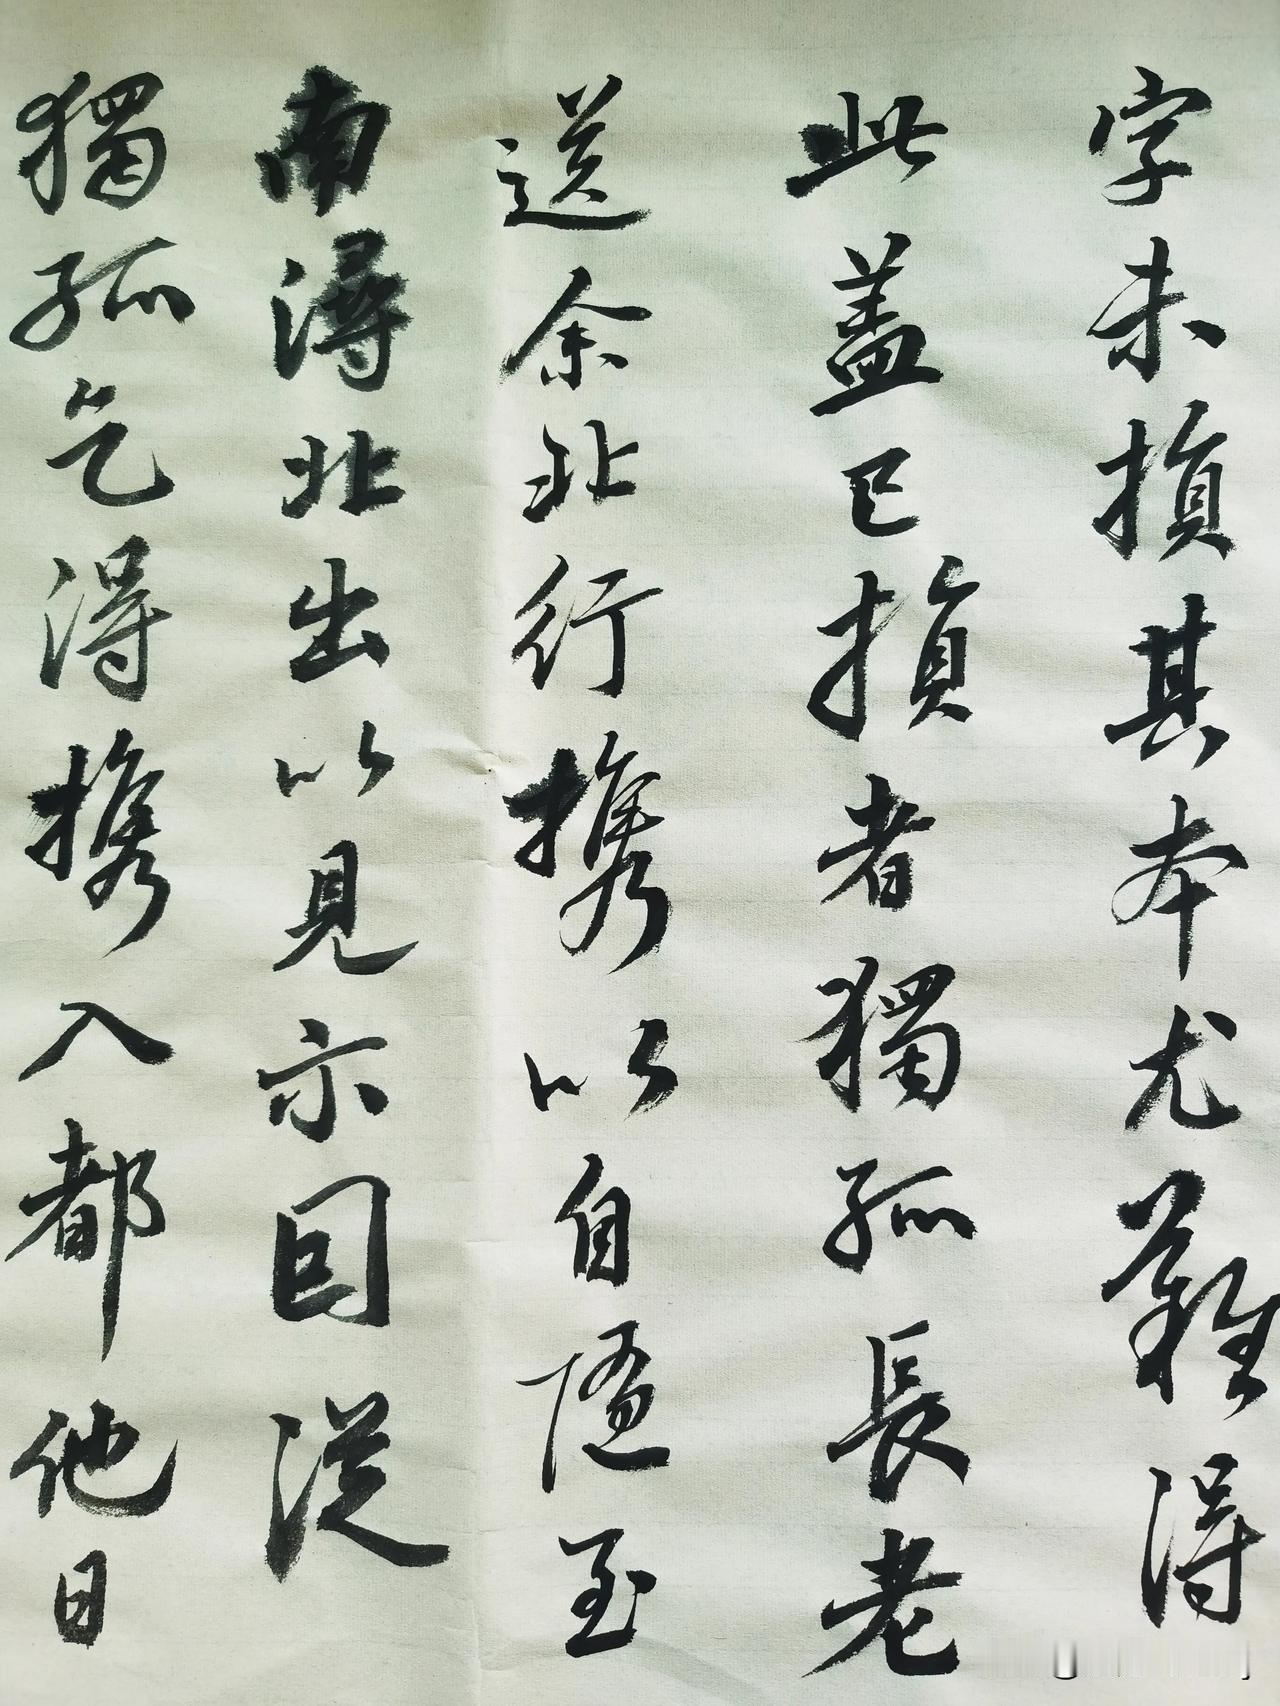 字未損其本尤難得
此蓋已損者獨孤長老
送余北行攜以自隨至
南潯北出以見示因從
獨孤乞得攜入都他日